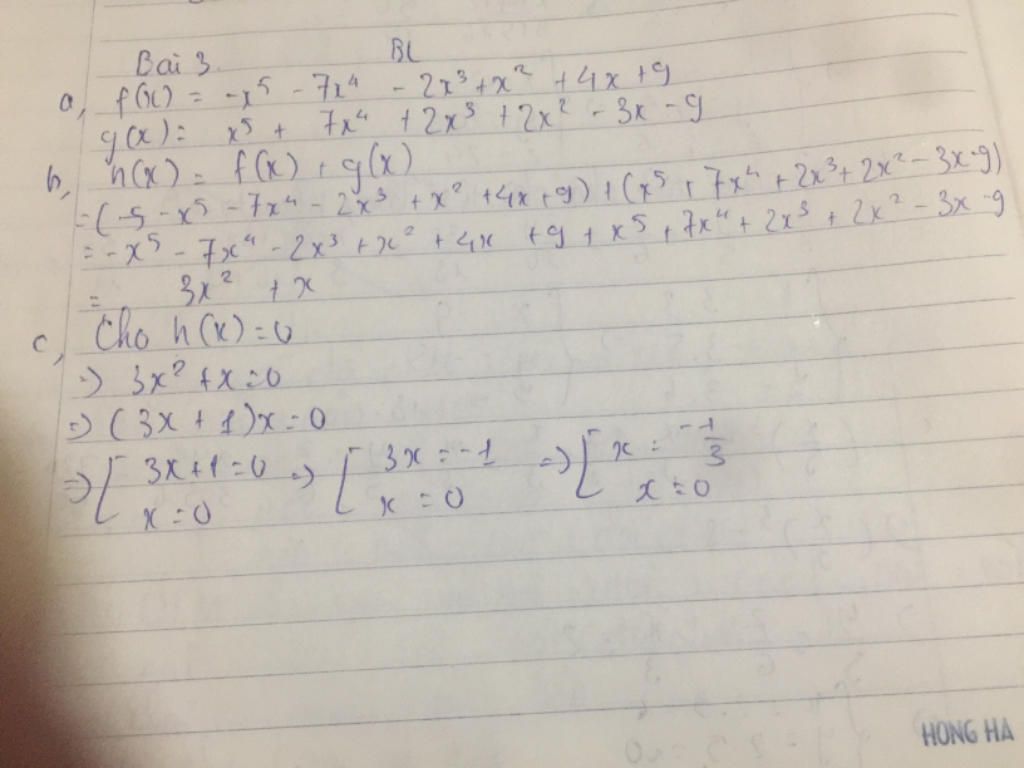 Bài 3. BL
a, f(x) = -x⁵ - 7x⁴ - 2x³ + x² + 4x + 9
g(x) = x⁵ + 7x⁴ + 2x³ + 2x² - 3x - 9
b, h(x) = f(x) + g(x)
= (-5 - x⁵ - 7x⁴ - 2x³ + x² + 4x + 9) + (x⁵ + 7x⁴ + 2x³ + 2x² - 3x - 9)
= -x⁵ - 7x⁴ - 2x³ + x² + 4x + 9 + x⁵ + 7x⁴ + 2x³ + 2x² - 3x - 9
= 3x² + x
c, Cho h(x) = 0
=> 3x² + x = 0
=> (3x + 1)x = 0
=> [ 3x + 1 = 0 => [ 3x = -1 => [ x = -1/3
x = 0 x = 0 x = 0
HONG HA